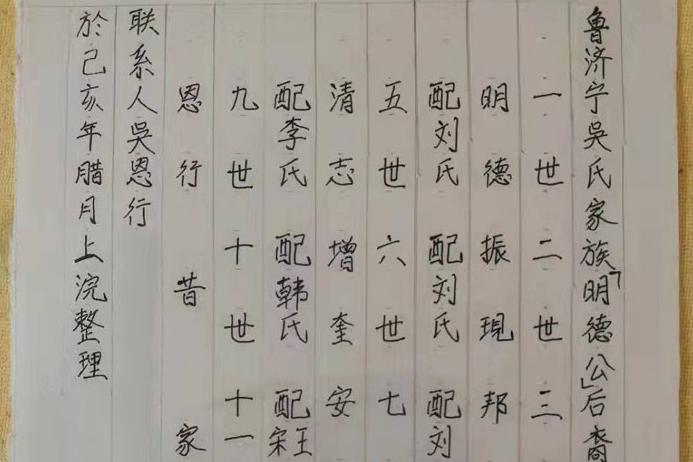 鲁济宁吴氏家族「明德公」后裔
一世二世三
明德振現邦
配刘氏配刘氏配刘
五世六世七
清志增奎安
配李氏配韩氏配宋王
九世十世十一
恩行昔家
联系人吴恩行
於己亥年腊月上浣整理